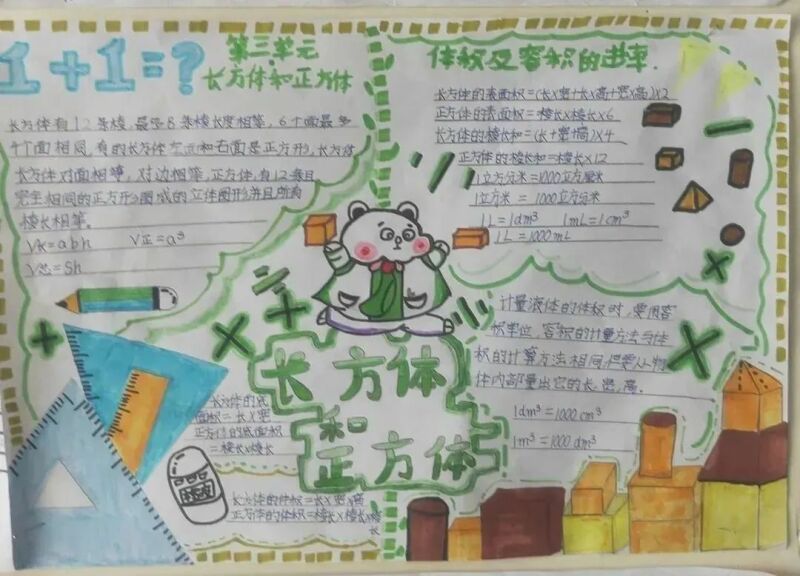 1+1=?
第三单元
长方体和正方体
长方体有12条棱,最多8条棱长度相等,6个面最多
4个面相同,有的长方体左面和右面是正方形,长方体
长方体对面相等,对边相等,正方体,有12条
完全相同的正方形围成的立体图形并且所有
棱长相等。
V长=abh V正=a³
V总=Sh
体积及容积的进率.
长方体的表面积=(长×宽+长×高+宽×高)×2
正方体的表面积=棱长×棱长×6
长方体的棱长和=(长+宽+高)×4
正方体的棱长和=棱长×12
1立方分米=1000立方厘米
1立方米=1000立方分米
1L=1dm³ 1mL=1cm³
1L=1000mL
计量液体的体积时,要用容
积单位,容积的计量方法与体
积的计算方法相同,但要从物
体内部量出它的长、宽、高.
1dm³=1000cm³
1m³=1000dm³
长方体
和
正方体
长方体的底
面积=长×宽
正方体的底面积
=棱长×棱长
长方体的体积=长×宽×高
正方体的体积=棱长×棱长×棱
长